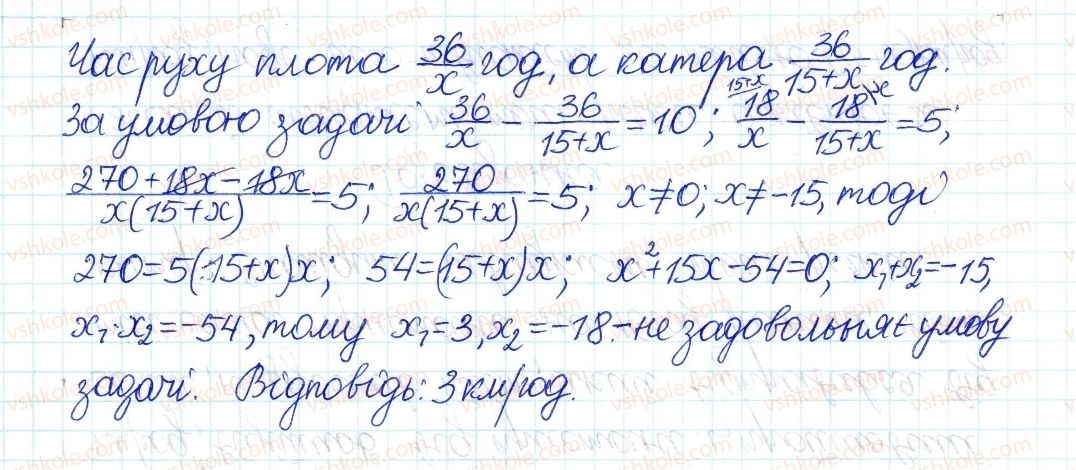 Час руху плота 36/x год, а катера 36/(15+x) год.
За умовою задачі 36/x - 36/(15+x) = 10; 18/x - 18/(15+x) = 5;
(270+18x-18x)/(x(15+x)) = 5; 270/(x(15+x)) = 5; x≠0; x≠-15, тоді
270=5(15+x)x; 54=(15+x)x; x²+15x-54=0; x₁+x₂=-15,
x₁·x₂=-54, тому x₁=3, x₂=-18 - не задовольняє умову
задачі. Відповідь: 3 км/год.